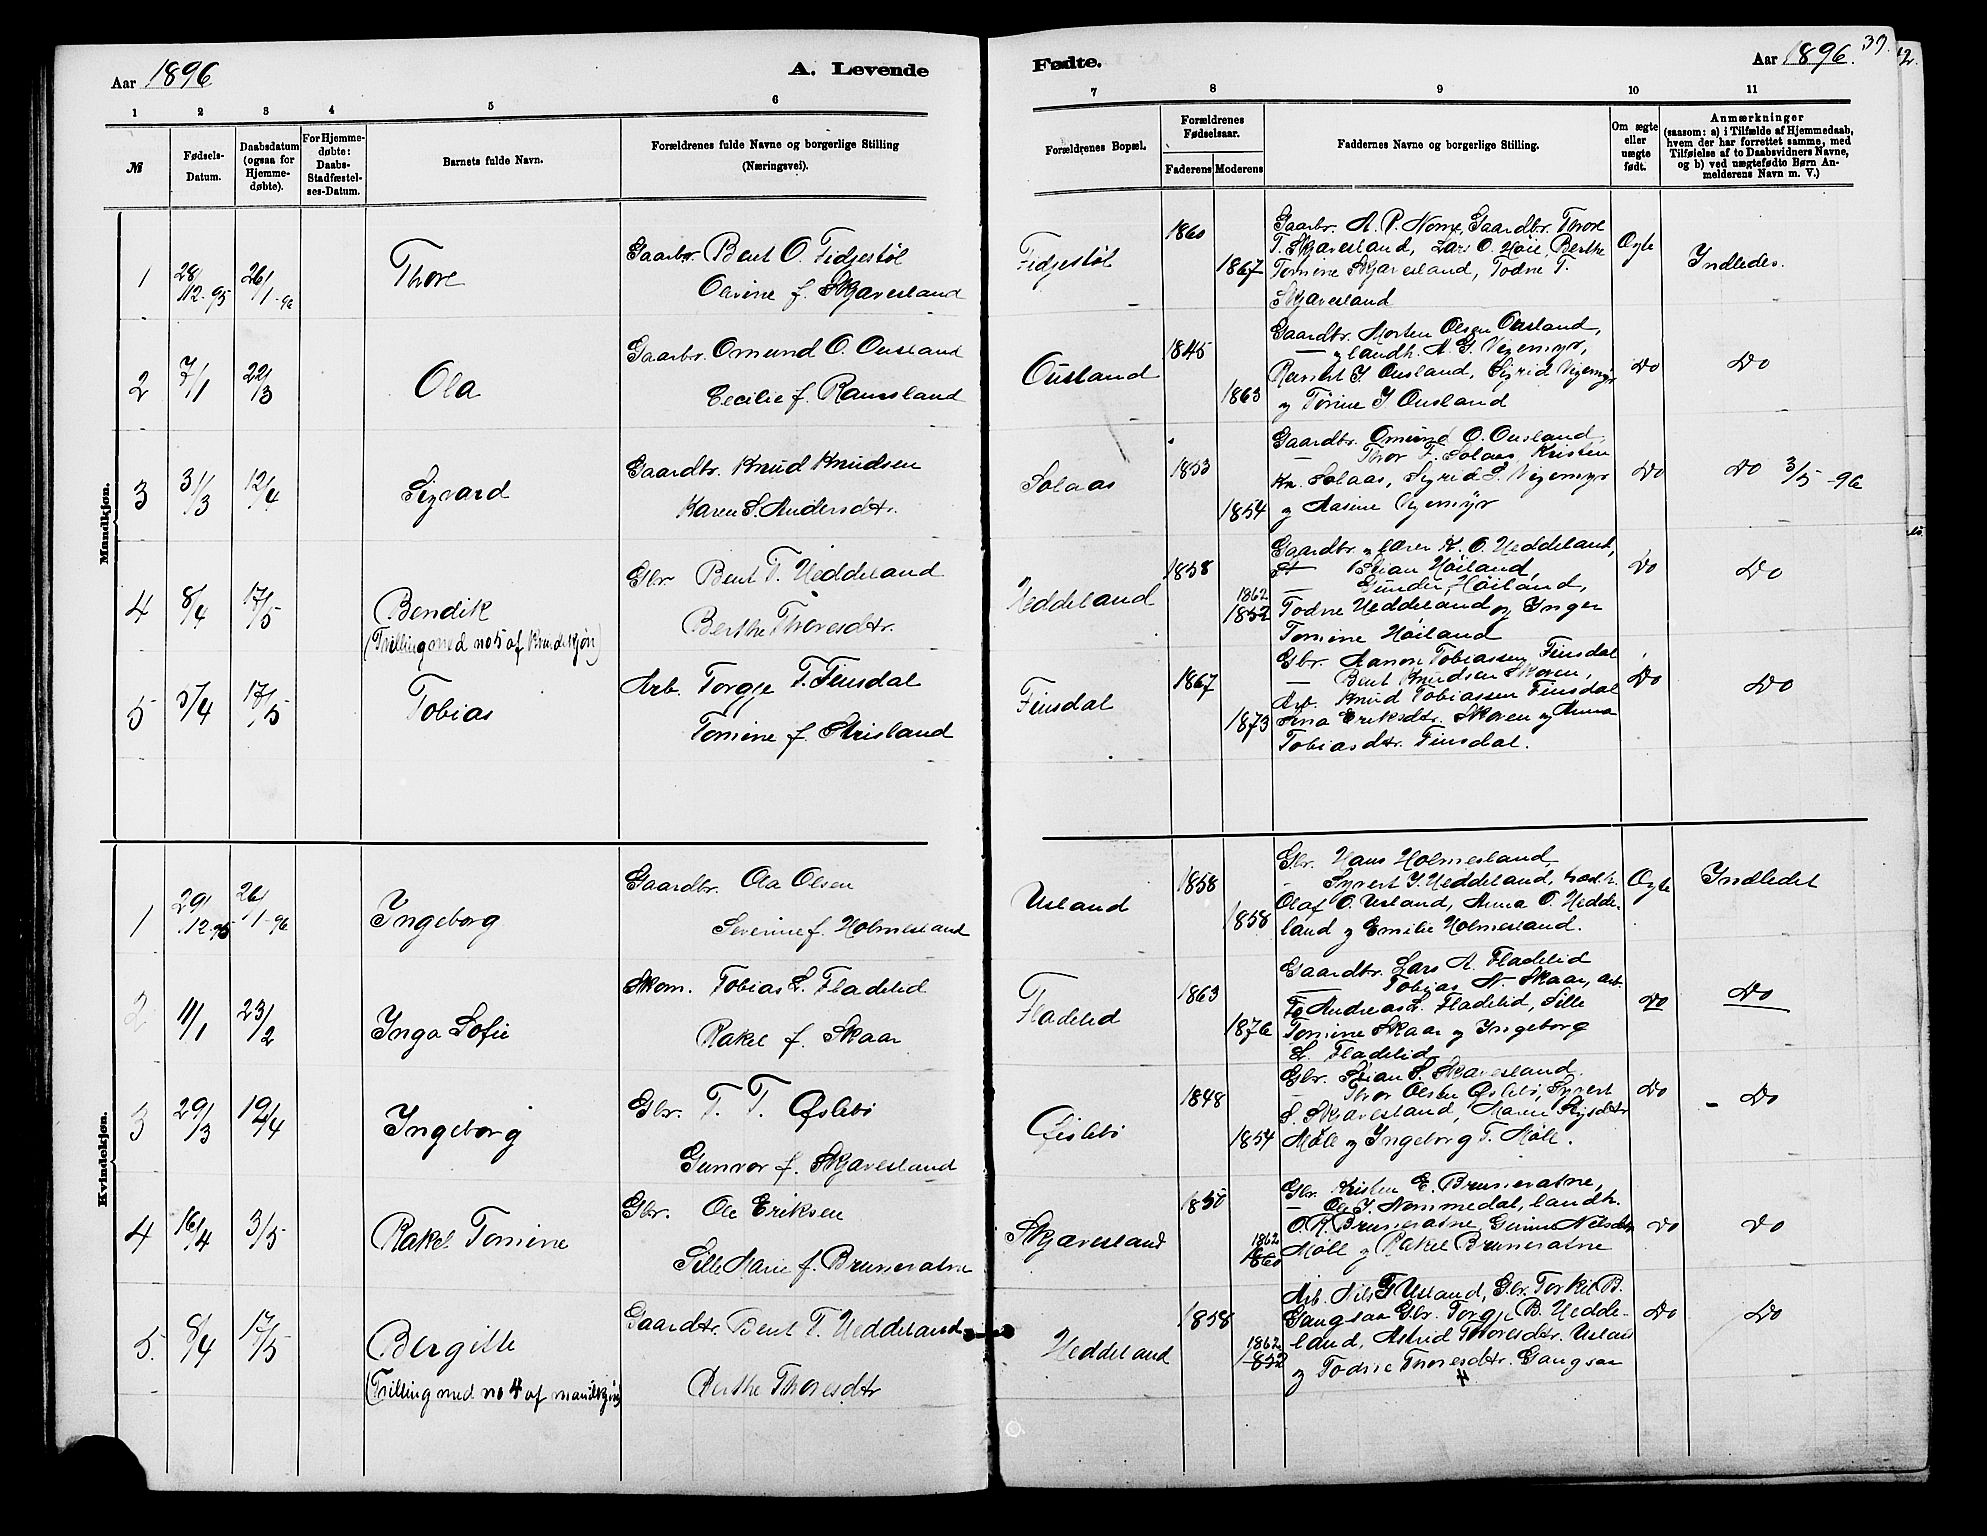 Aar 1896
A. Levende
Fødte.
Aar 1896.
39.
1 2 3 4 5 6 7 8 9 10 11
№
Fødsels-
Datum.
Daabsdatum
(ogsaa for
Hjemme-
døbte).
For Hjemme-
døbte:
Daabs-
Stadfæstel-
ses-Datum.
Barnets fulde Navn.
Forældrenes fulde Navne og borgerlige Stilling
(Næringsvei).
Forældrenes Bopæl.
Forældrenes
Fødselsaar.
Faderens Moderens
Faddernes Navne og borgerlige Stilling.
Om ægte
eller
uægte
født.
Anmærkninger
(saasom: a) i Tilfælde af Hjemmedaab,
hvem der har forrettet samme, med
Tilføielse af to Daabsvidners Navne,
og b) ved uægtefødte Børn An-
melderens Navn m. V.)
Mandkjøn.
1 28/12-95 26/1-96 Thore
Gaarbr. Bent O. Fidjestøl
Olivine f. Skjævesland
Fidjestøl 1860 1867
Gaarbr. A. P. Gaardbr. Thore
T. Skjævesland, Lars O. Høie, Berthe
Tomine Skjævesland, Todne T.
Skjævesland
Ægte Indledes.
2 7/1 22/3 Ola
Gaarbr. Omund O. Ousland
Cecilie f. Ramsland
Ousland 1845 1863
Gaardbr. Morten Olsen Ousland,
— landh. A. G. Vejemyr,
J. Ousland, Sigrid Vejemyr
og Torine J Ousland
Do Do
3 31/3 12/4 Sigvard
Gaardbr. Knud Knudsen
Karen S. Andersdtr.
Solaas 1853 1854
Gaardbr. Omund O. Ousland
— Thor F. Solaas, Kristen
Kn. Solaas, Sigrid S. Vejemyr
og Aasine Vejemyr
Do Do 3/5-96
4 8/4 17/5 Bendik
(Trilling med no 5 af Kvindekjøn)
Gbr Bent T. Heddeland
Berthe Thoresdtr.
Heddeland 1858 1862 1852
Gaardbr. og lærer K. O. Heddeland,
— Stian Høiland,
— Gunder Høiland,
Todne Heddeland og Inger
Tomine Høiland
Do Do
5 5/4 17/5 Tobias
Arb. Torgje T. Finsdal
Tomine f. Strisland
Finsdal 1867 1873
Gbr. Aanon Tobiassen Finsdal
— Bent Knudsen Skoven,
Arb. Knud Tobiassen Finsdal
Sina Eriksdtr. Skoven og Anna
Tobiasdtr. Finsdal.
Do Do
Kvindekjøn.
1 29/12-95 26/1-96 Ingeborg
Gaardbr. Ola Olsen
Severine f. Holmesland
Usland 1858 1858
Gbr. Hans Holmesland,
— Syvert J. Heddeland, landh.
Olaf O. Usland, Anna O. Hedde-
land og Emilie Holmesland.
Ægte Indledet
2 11/1 23/2 Inga Sofie
Skom. Tobias L. Fladelid
Rakel f. Skaar
Fladelid 1863 1876
Gaardbr. Lars A. Fladelid
— Tobias N. Skaar, arb.
Andreas L. Fladelid, Sille
Tomine Skaar og Ingeborg
L. Fladelid
Do Do
3 29/3 19/4 Ingeborg
Gbr. T. T. Øslebø
Gunvor f. Skjævesland
Øislebø 1848 1854
Gbr. Stian S. Skjævesland.
— Thor Olsen Øslebø, Syvert
S. Skjævesland, Maren
Møll og Ingeborg T. Møll.
Do Do
4 16/4 3/5 Rakel Tomine
Gbr. Ole Eriksen
Sille Marie f. Brunevatne
Skjævesland 1850 1862 1860
Gbr. Kristen E. Brunevatne,
— Ole J. Nommedal, landh.
O. K. Brunevatne, Gurine Nilsdtr
Møll og Rakel Brunevatne
Do Do
5. 8/4 17/5 Bergitte
(Trilling med no 4 af mandkjøn)
Gaardbr. Bent T. Heddeland
Berthe Thoresdtr
Heddeland 1858 1862 1852
Arb. Nils G Usland, Gbr. Torkel B.
Gangsaa Gbr. Torgje B. Hedde-
land, Astrid Thoresdtr. Usland
og Todne Thoresdtr. Gangsaa
Do Do